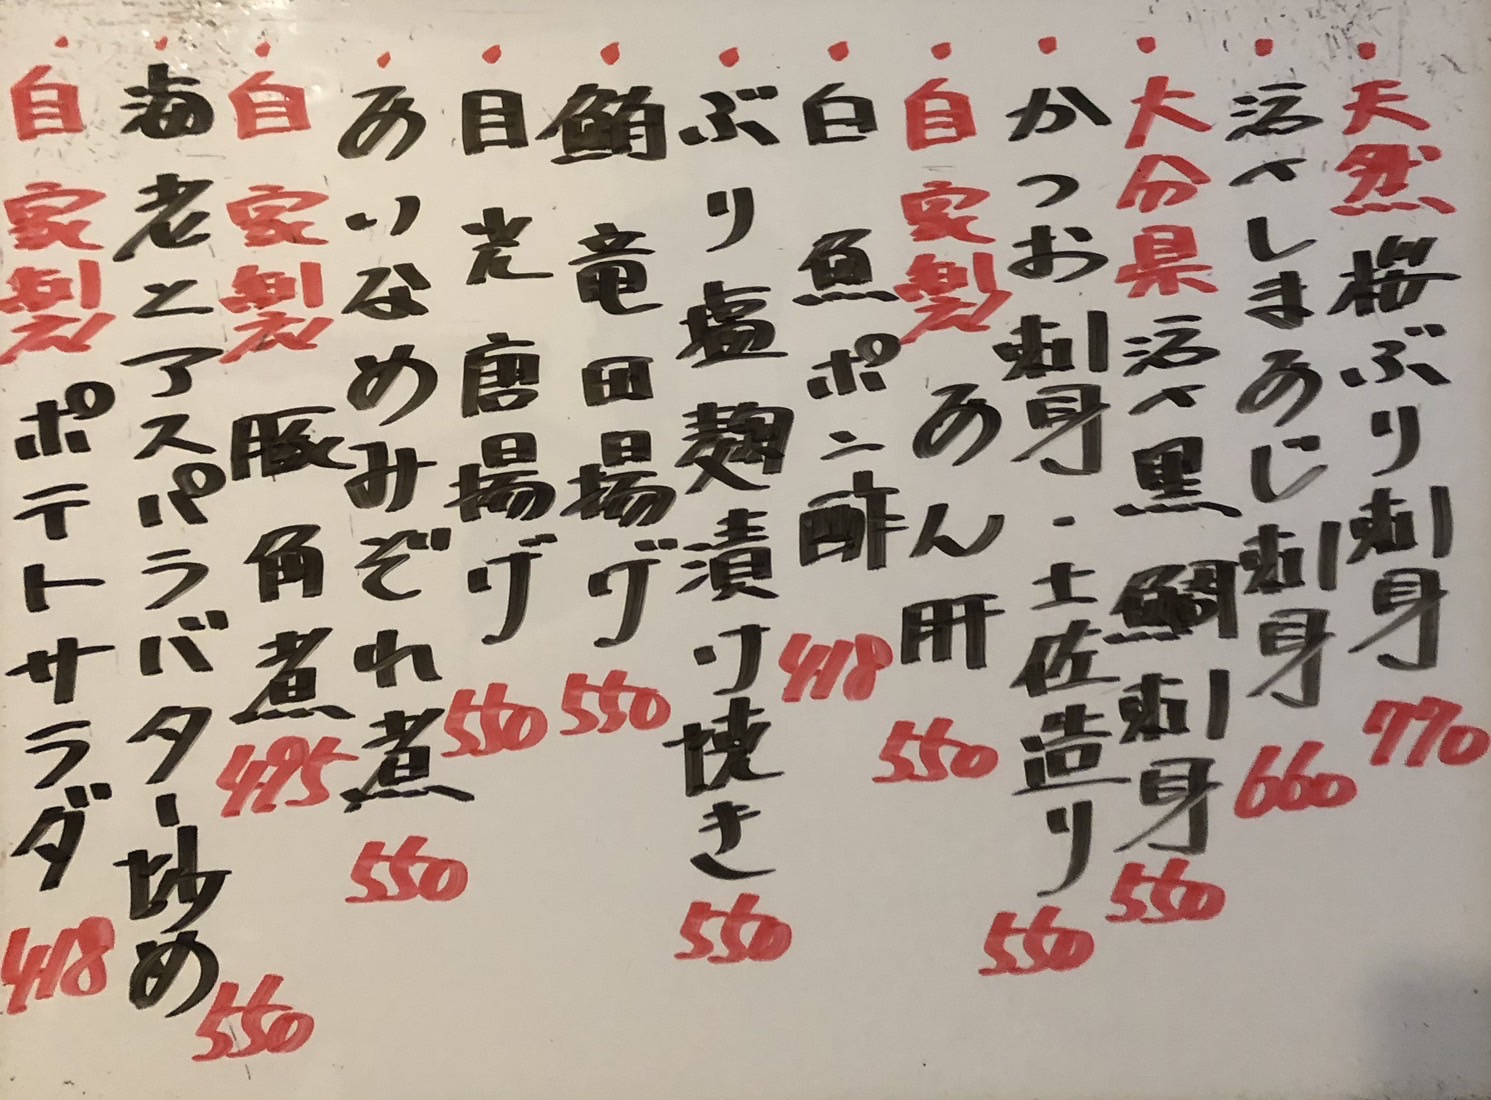 ・天然桜ぶり刺身 770
・活〆しまあじ刺身 660
・大分県活〆黒鯛刺身 550
・かつお刺身・土佐造り 550
・自家製あん肝 550
・白魚ポン酢 418
・ぶり塩麹漬け焼き 550
・鮪竜田揚げ 550
・目光唐揚げ 550
・あいなめみぞれ煮 550
・自家製豚角煮 495
・海老とアスパラバター炒め 550
・自家製ポテトサラダ 418